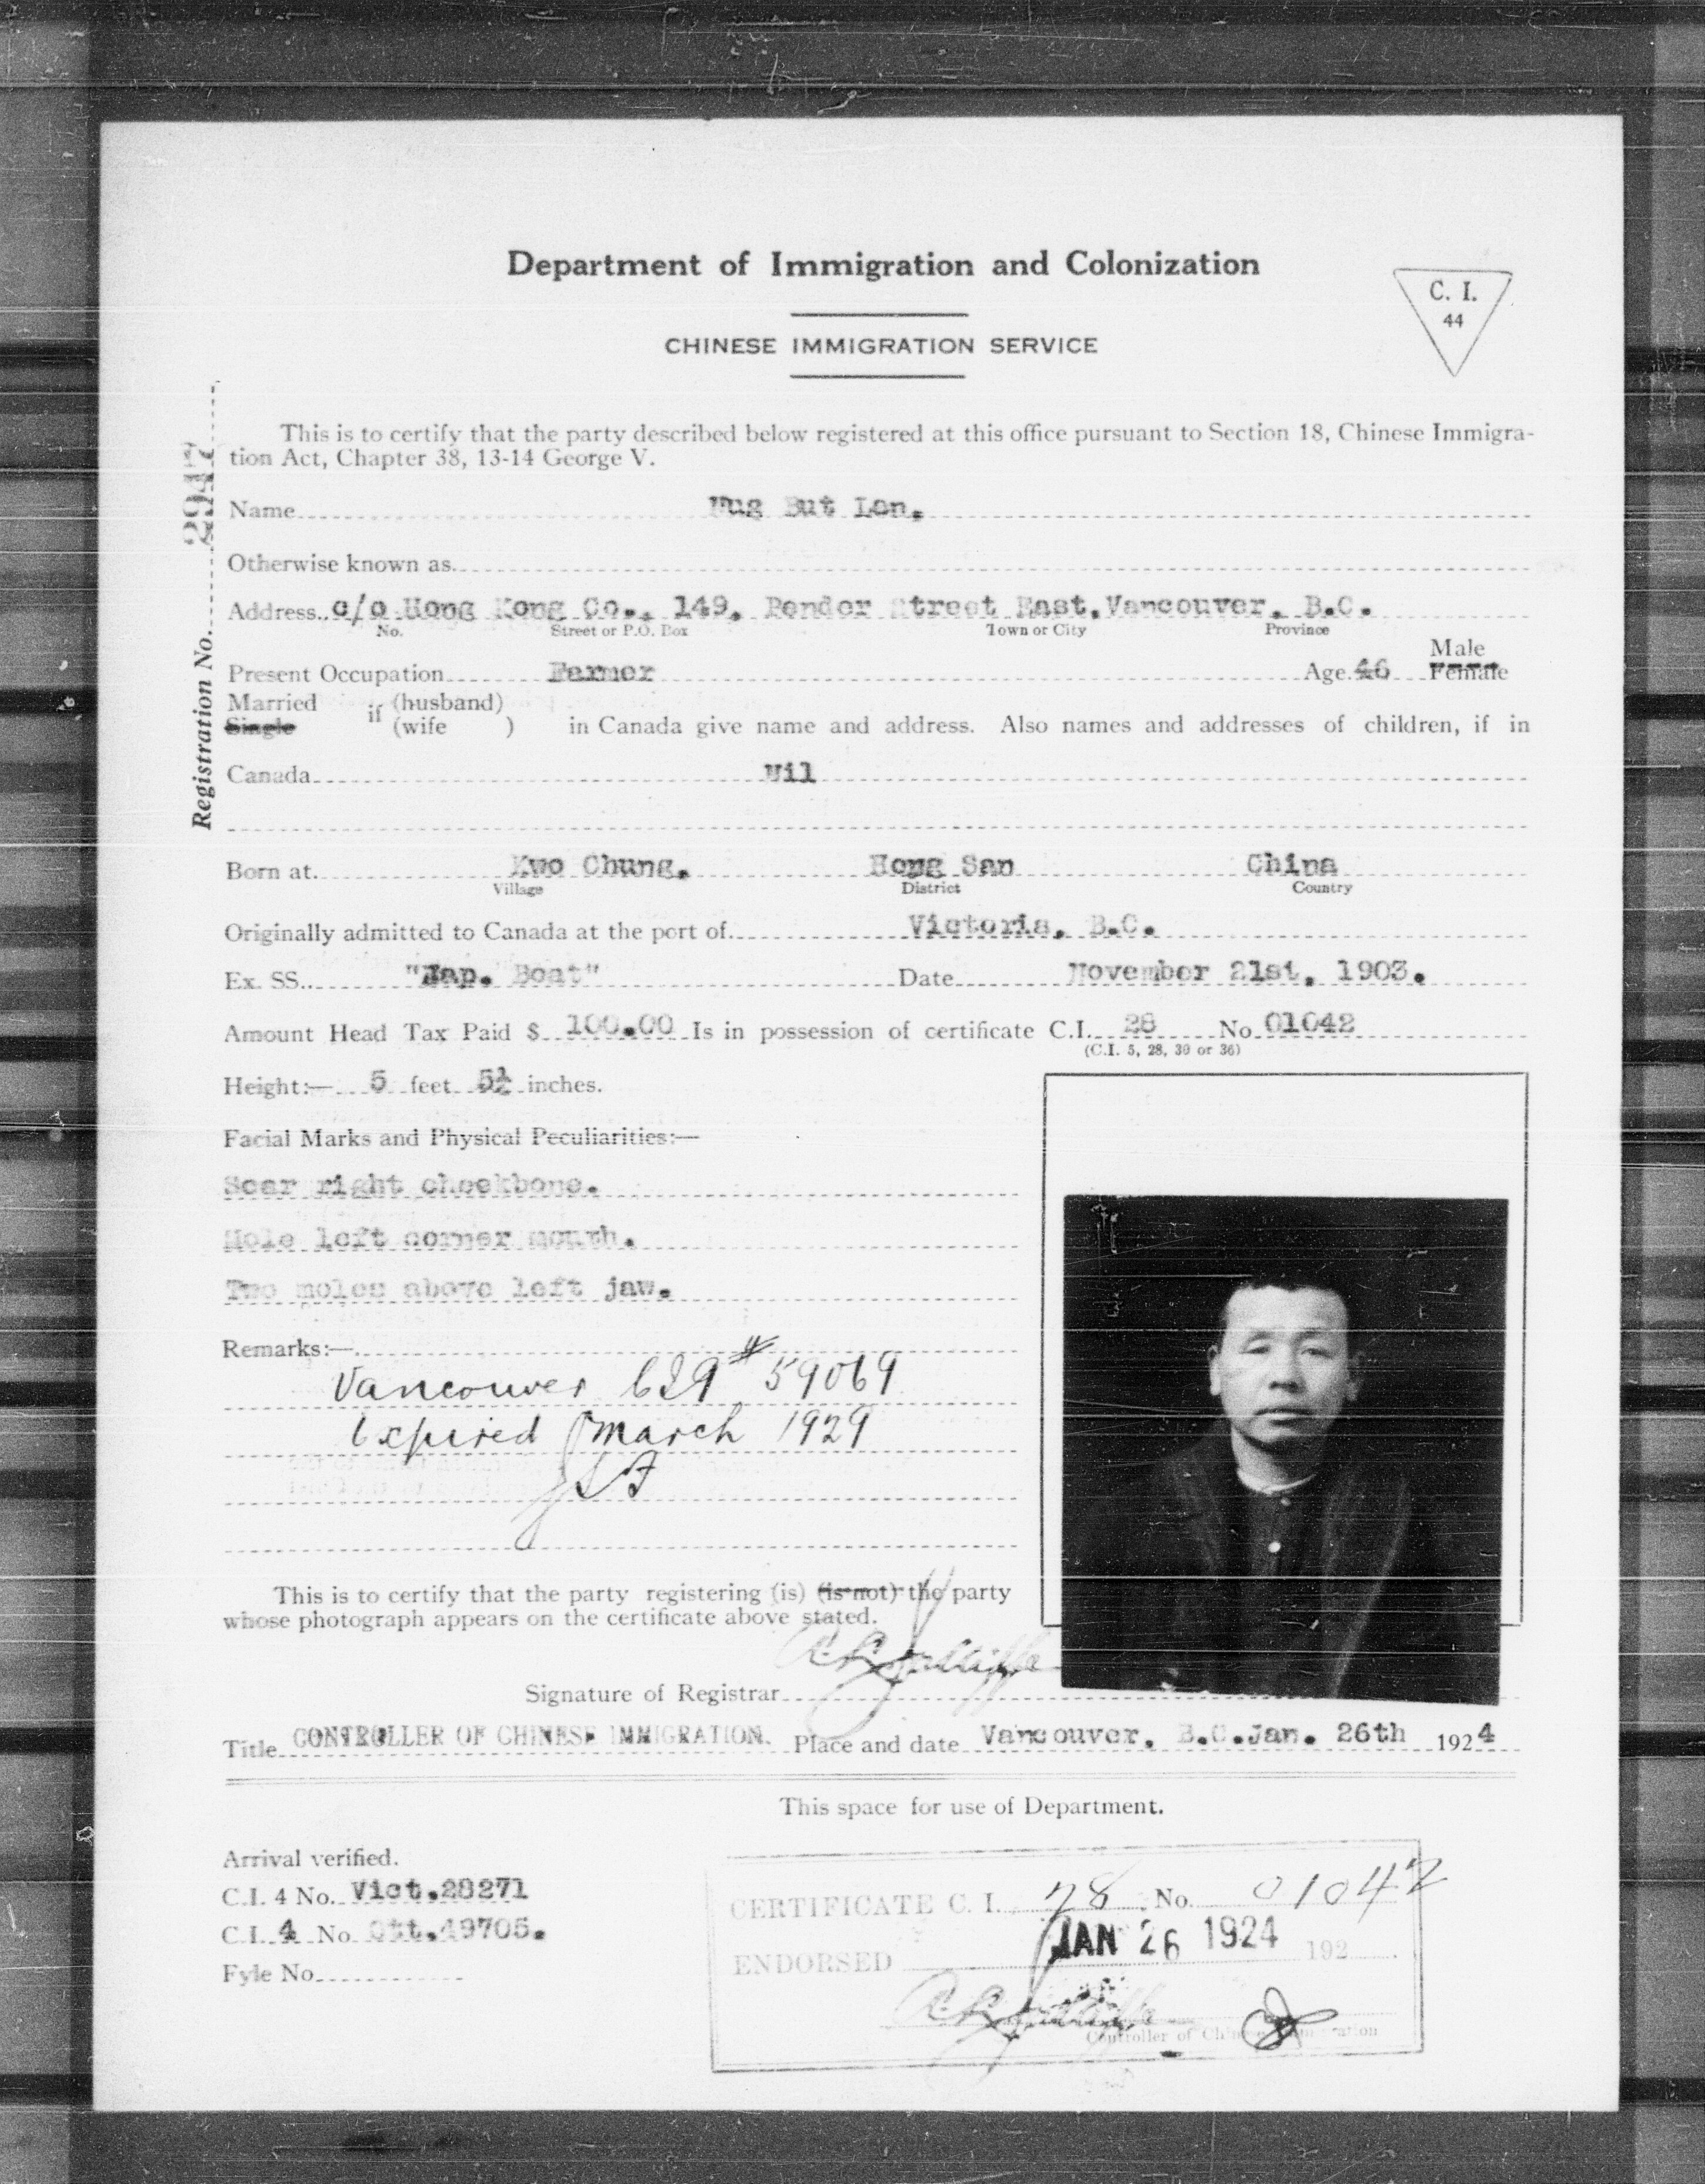 Department of Immigration and Colonization
C. I.
44
CHINESE IMMIGRATION SERVICE
Registration No. 2947
This is to certify that the party described below registered at this office pursuant to Section 18, Chinese Immigra-
tion Act, Chapter 38, 13-14 George V.
Name But Lon.
Otherwise known as
Address c/o Hong Kong Co., 149, Pender Street East, Vancouver, B.C.
No. Street or P.O. Box Town or City Province
Male
Present Occupation Farmer Age 46 Female
Married if (husband)
Single (wife ) in Canada give name and address. Also names and addresses of children, if in
Canada Nil
Born at Kwo Chung. Hong San China
Village District Country
Originally admitted to Canada at the port of Victoria, B.C.
Ex. SS. "Jap. Boat" Date November 21st, 1903.
Amount Head Tax Paid $ 100.00 Is in possession of certificate C.I. 28 No 01042
(C.I. 5, 28, 30 or 36)
Height:— 5 feet 5½ inches.
Facial Marks and Physical Peculiarities:—
Scar right cheekbone.
Mole left corner mouth.
Two moles above left jaw.
Remarks:—
Vancouver C29 # 59069
Expired March 1929
This is to certify that the party registering (is) (is not) the party
whose photograph appears on the certificate above stated.
Signature of Registrar
Title CONTROLLER OF CHINESE IMMIGRATION. Place and date Vancouver, B.C. Jan. 26th 1924
This space for use of Department.
Arrival verified.
C.I. 4 No. Vict. 28271
C.I. 4 No. Ott. 49705.
Fyle No.
CERTIFICATE C. I. 28 No. 01042
ENDORSED JAN 26 1924 192
Controller of Chinese Immigration